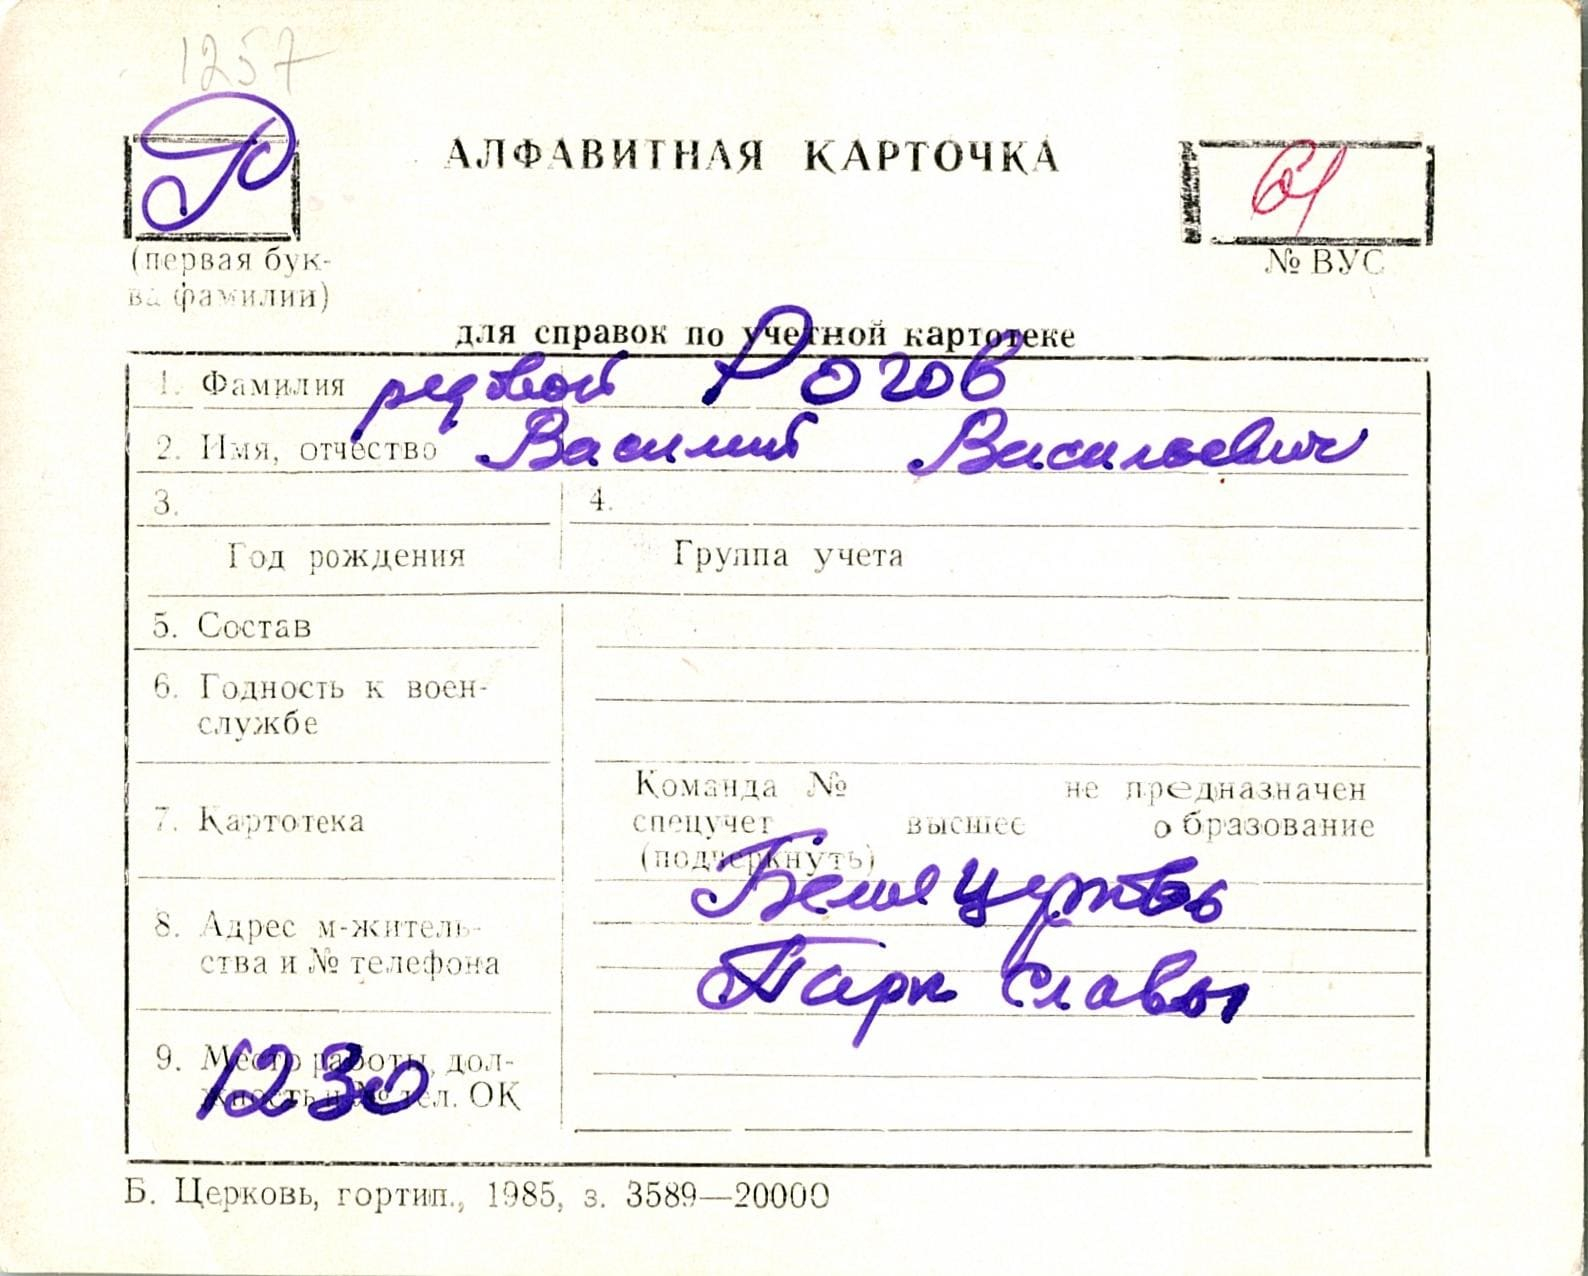 1257
Р
АЛФАВИТНАЯ КАРТОЧКА
61
(первая бук-
ва фамилии)
№ ВУС
для справок по учетной картотеке
1. Фамилия рядовой Рогов
2. Имя, отчество Василий Васильевич
3.
4.
Год рождения
Группа учета
5. Состав
6. Годность к воен-
службе
7. Картотека
Команда № не предназначен
спецучет высшее образование
(подчеркнуть)
8. Адрес м-житель-
ства и № телефона
Белая Церковь
Парк Славы
9. Место работы, дол-
жность и № тел. ОК
1230
Б. Церковь, гортип., 1985, з. 3589—20000